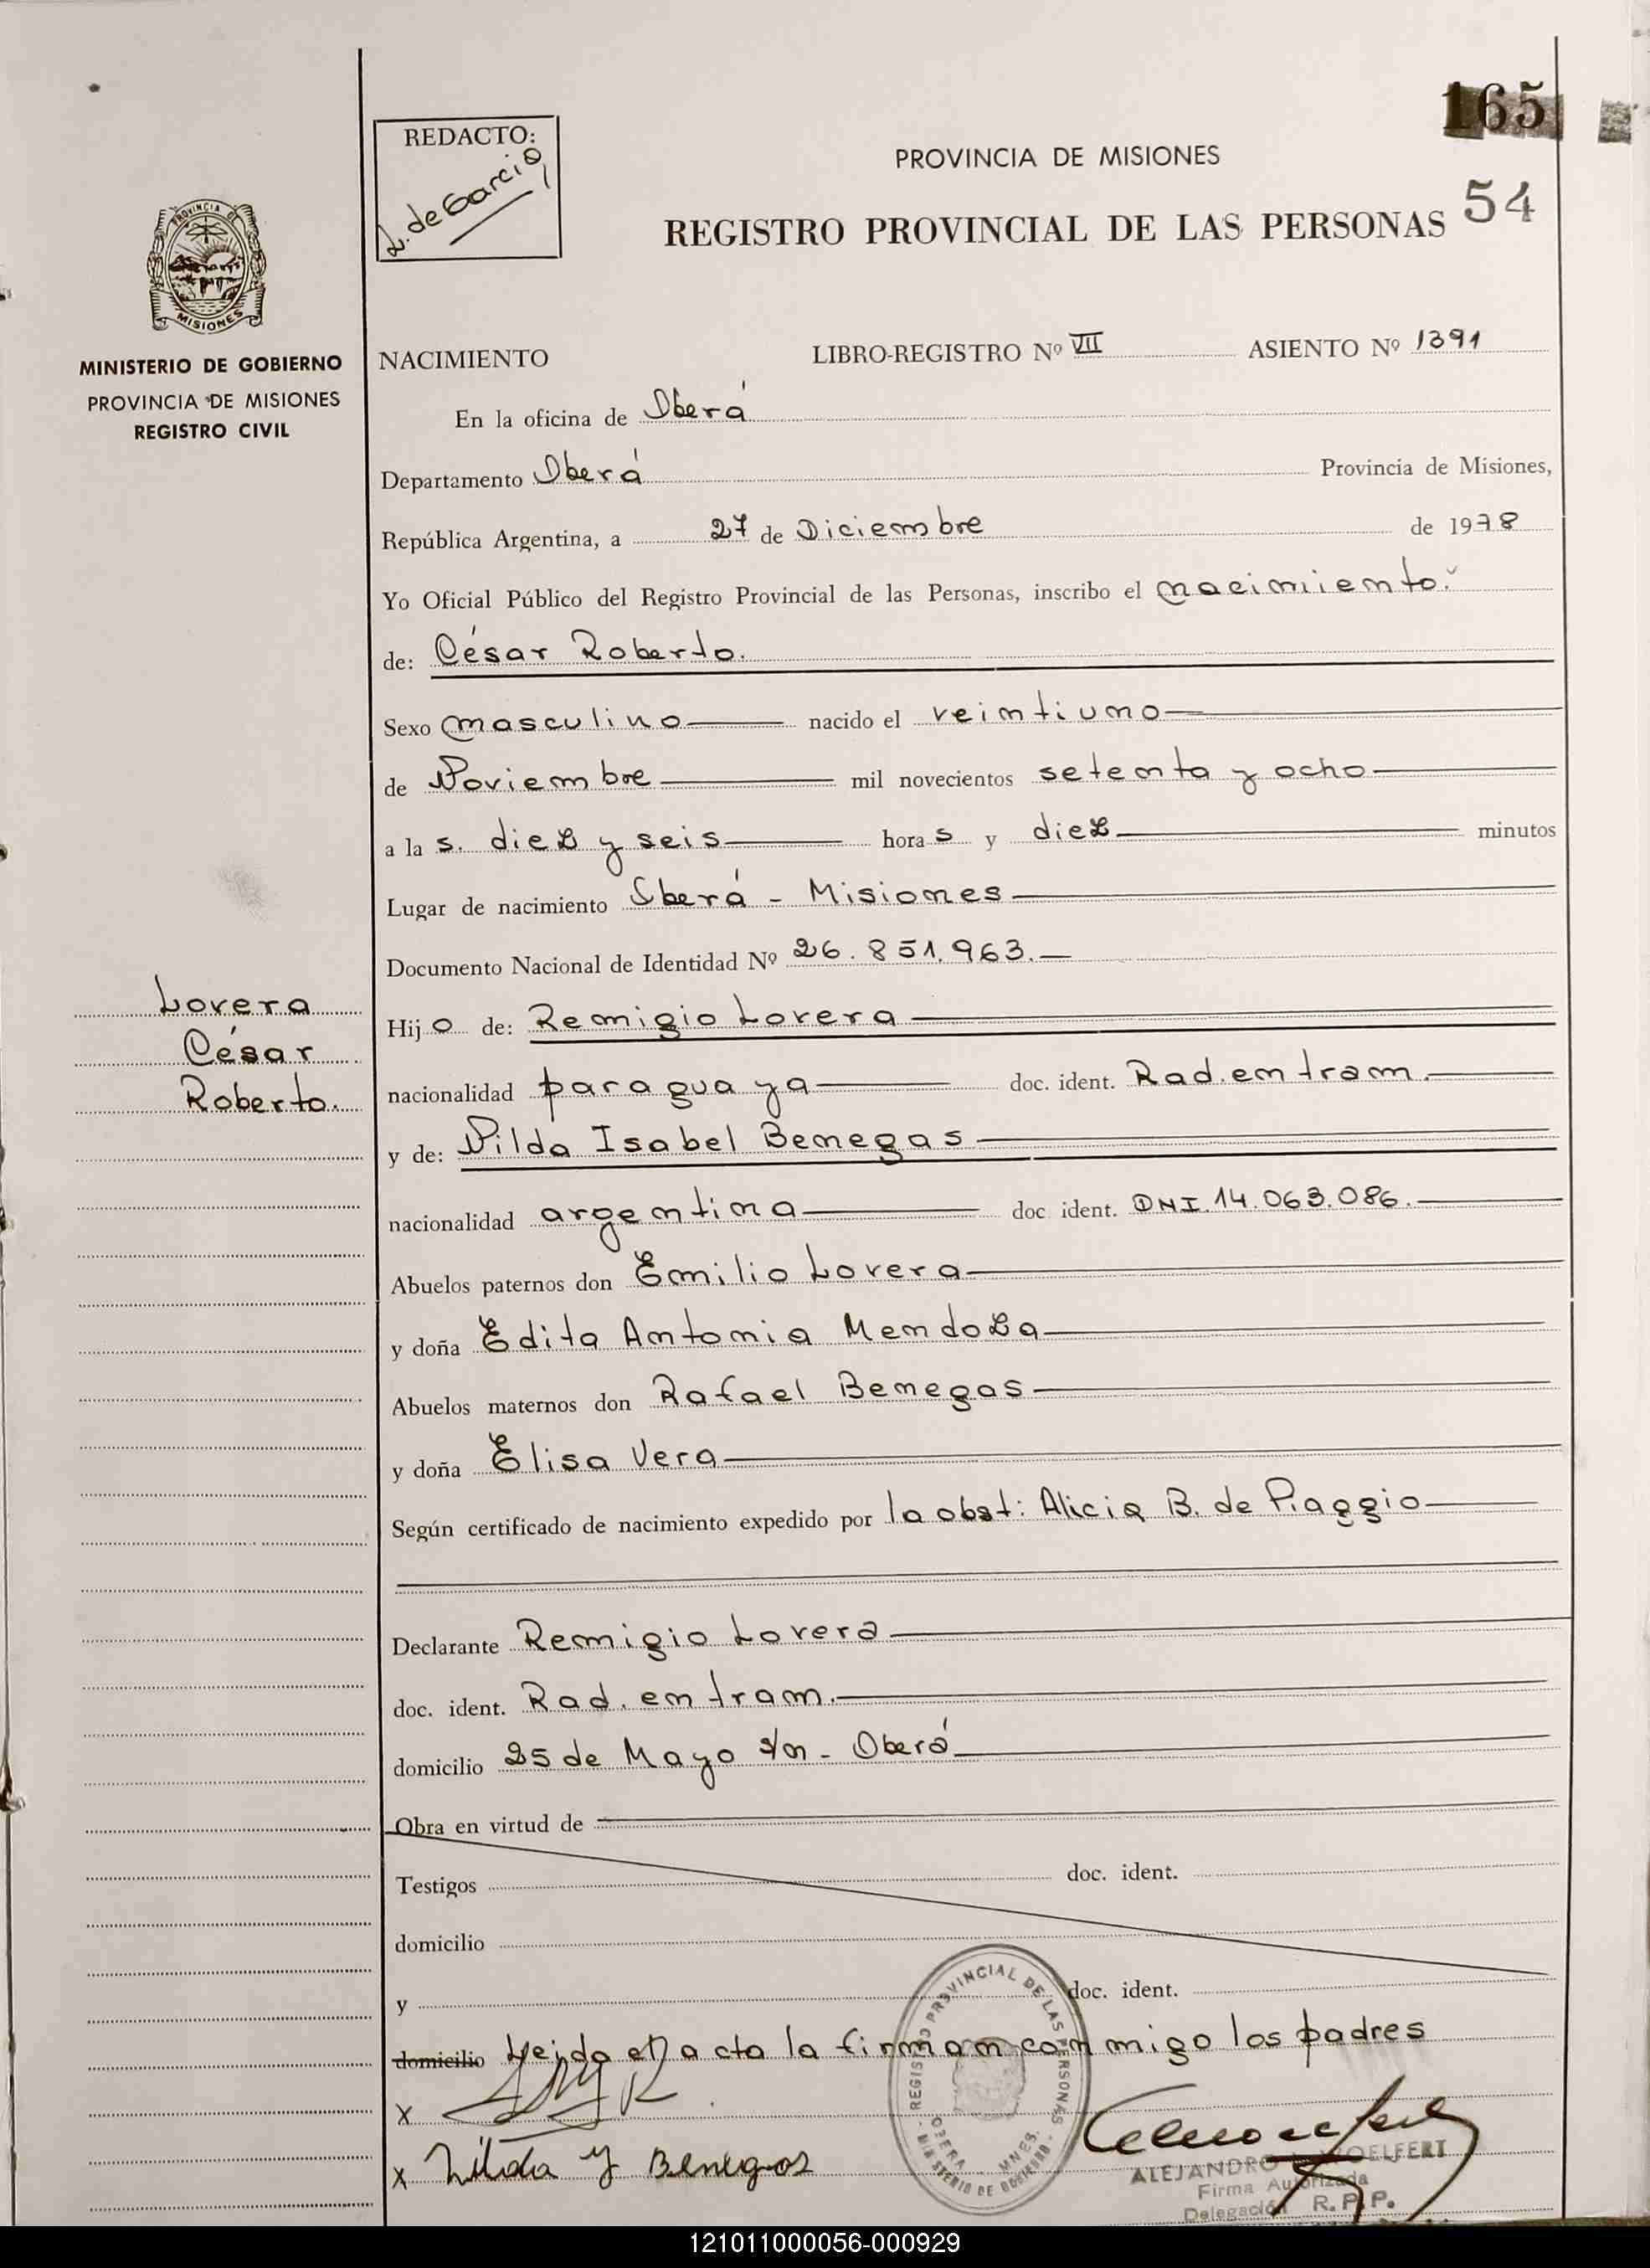 165
REDACTO:
L. de Garcia
PROVINCIA DE MISIONES
54
REGISTRO PROVINCIAL DE LAS PERSONAS
PROVINCIA DE
MISIONES
MINISTERIO DE GOBIERNO
PROVINCIA DE MISIONES
REGISTRO CIVIL
NACIMIENTO LIBRO-REGISTRO Nº VII ASIENTO Nº 1391
En la oficina de Oberá
Departamento Oberá Provincia de Misiones,
República Argentina, a 27 de Diciembre de 1978
Yo Oficial Público del Registro Provincial de las Personas, inscribo el nacimiento
de: César Roberto.
Sexo masculino nacido el veintiuno
de Noviembre mil novecientos setenta y ocho
a la s. diez y seis hora s y diez minutos
Lugar de nacimiento Oberá - Misiones
Documento Nacional de Identidad Nº 26.851.963.
Lovera
César
Roberto.
Hij o de: Remigio Lovera
nacionalidad paraguaya doc. ident. Rad. en tram.
y de: Nilda Isabel Benegas
nacionalidad argentina doc. ident. DNI. 14.063.086.
Abuelos paternos don Emilio Lovera
y doña Edita Antonia Mendoza
Abuelos maternos don Rafael Benegas
y doña Elisa Vera
Según certificado de nacimiento expedido por la obst: Alicia B. de Piaggio
Declarante Remigio Lovera
doc. ident. Rad. en tram.
domicilio 25 de Mayo s/n - Oberá
Obra en virtud de
Testigos doc. ident.
domicilio
y doc. ident.
domicilio Leída el acta la firman conmigo los padres
x
x Nilda Y Benegas
REGISTRO PROVINCIAL DE LAS PERSONAS
OBERA - MNES.
MINISTERIO DE GOBIERNO
ALEJANDRO WOELFERT
Firma Autorizada
Delegación R.P.P.
121011000056-000929